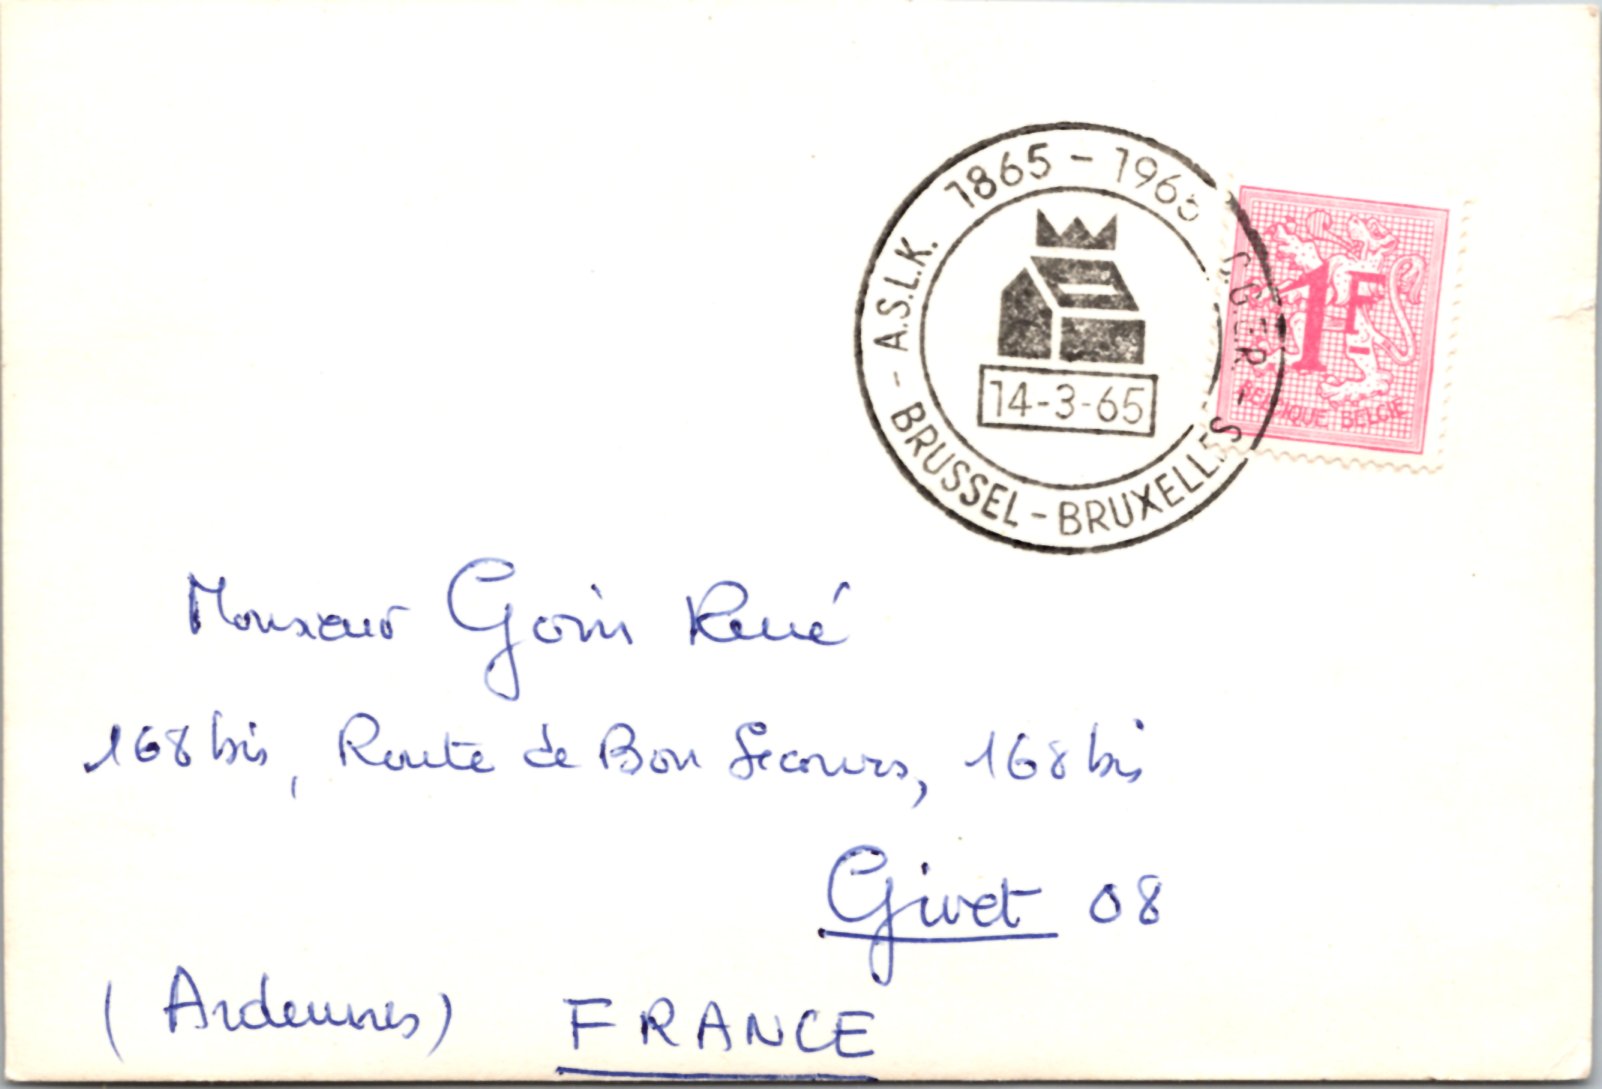 A.S.L.K. 1865 - 1965 C.G.E.R. -
- BRUSSEL - BRUXELLES
14-3-65
1F
BELGIQUE BELGIE
Monsieur Goin René
168 bis, Route de Bon Secours, 168 bis
Givet 08
(Ardennes) FRANCE